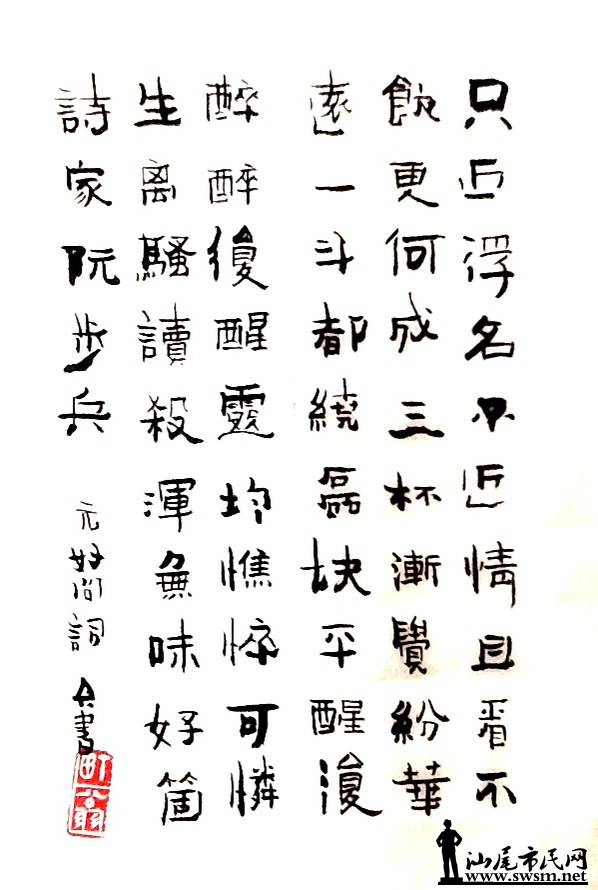 只近浮名不近情且看不
飲更何成三杯漸覺紛華
遠一斗都繞磊块平醒復
醉醉復醒靈均憔悴可憐
生离騷讀殺渾無味好箇
詩家阮步兵
元好问詞 書
汕尾市民网
www.swsm.net